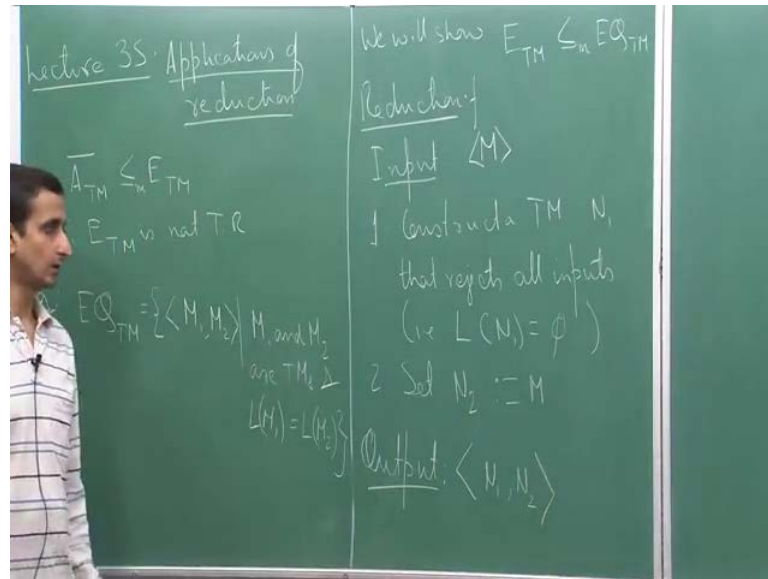 Lecture 35: Applications of
reduction
A̅_TM ≤_m E_TM
E_TM is not TR
EQ_TM = {<M₁, M₂> | M₁ and M₂
are TMs &
L(M₁) = L(M₂)}
We will show E_TM ≤_m EQ_TM
Reduction f
Input <M>
1 Construct a TM N₁
that rejects all inputs
(ie L(N₁) = φ)
2 Set N₂ := M
Output: <N₁, N₂>